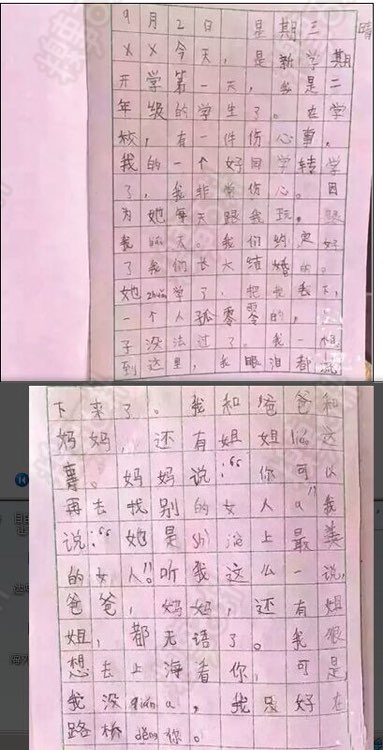 9月2日 星期三 晴
××今天，是新学期
开学第一天，我是二
年级的学生了。在学
校，有一件伤心事，
我的一个好同学转学
了，我非常伤心。因
为她每天跟我玩。跟
我聊天。我们约定好
了我们长大结婚的。
她zhuǎn学了，把我丢下，
一个人孤零零的，
子没法过了。我一想
到这里，我眼泪都流
下来了。我和爸爸和
妈妈，还有姐姐liáo这
事。妈妈说：“你可以
再去找别的女人a”我
说：“她是shì jiè上最美
的女人”。听我这么一说，
爸爸，妈妈，还有姐
姐，都无语了。我很
想去上海看你，可是，
我没qián a，我只好在
路桥děng你。